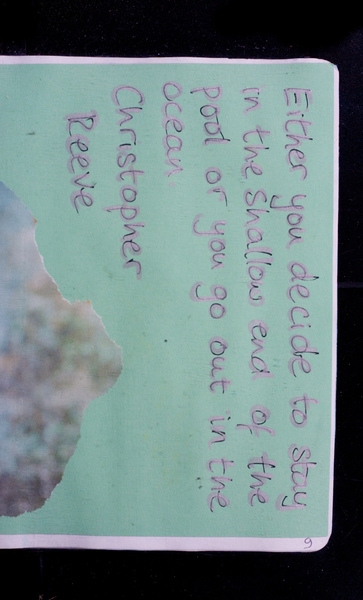 Either you decide to stay
in the shallow end of the
pool or you go out in the
ocean.
Christopher
Reeve
9